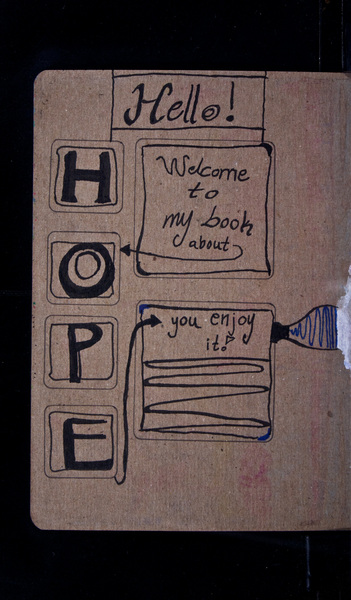 Hello!
Welcome
to
my book
about
H
O
P
E
you enjoy
it!